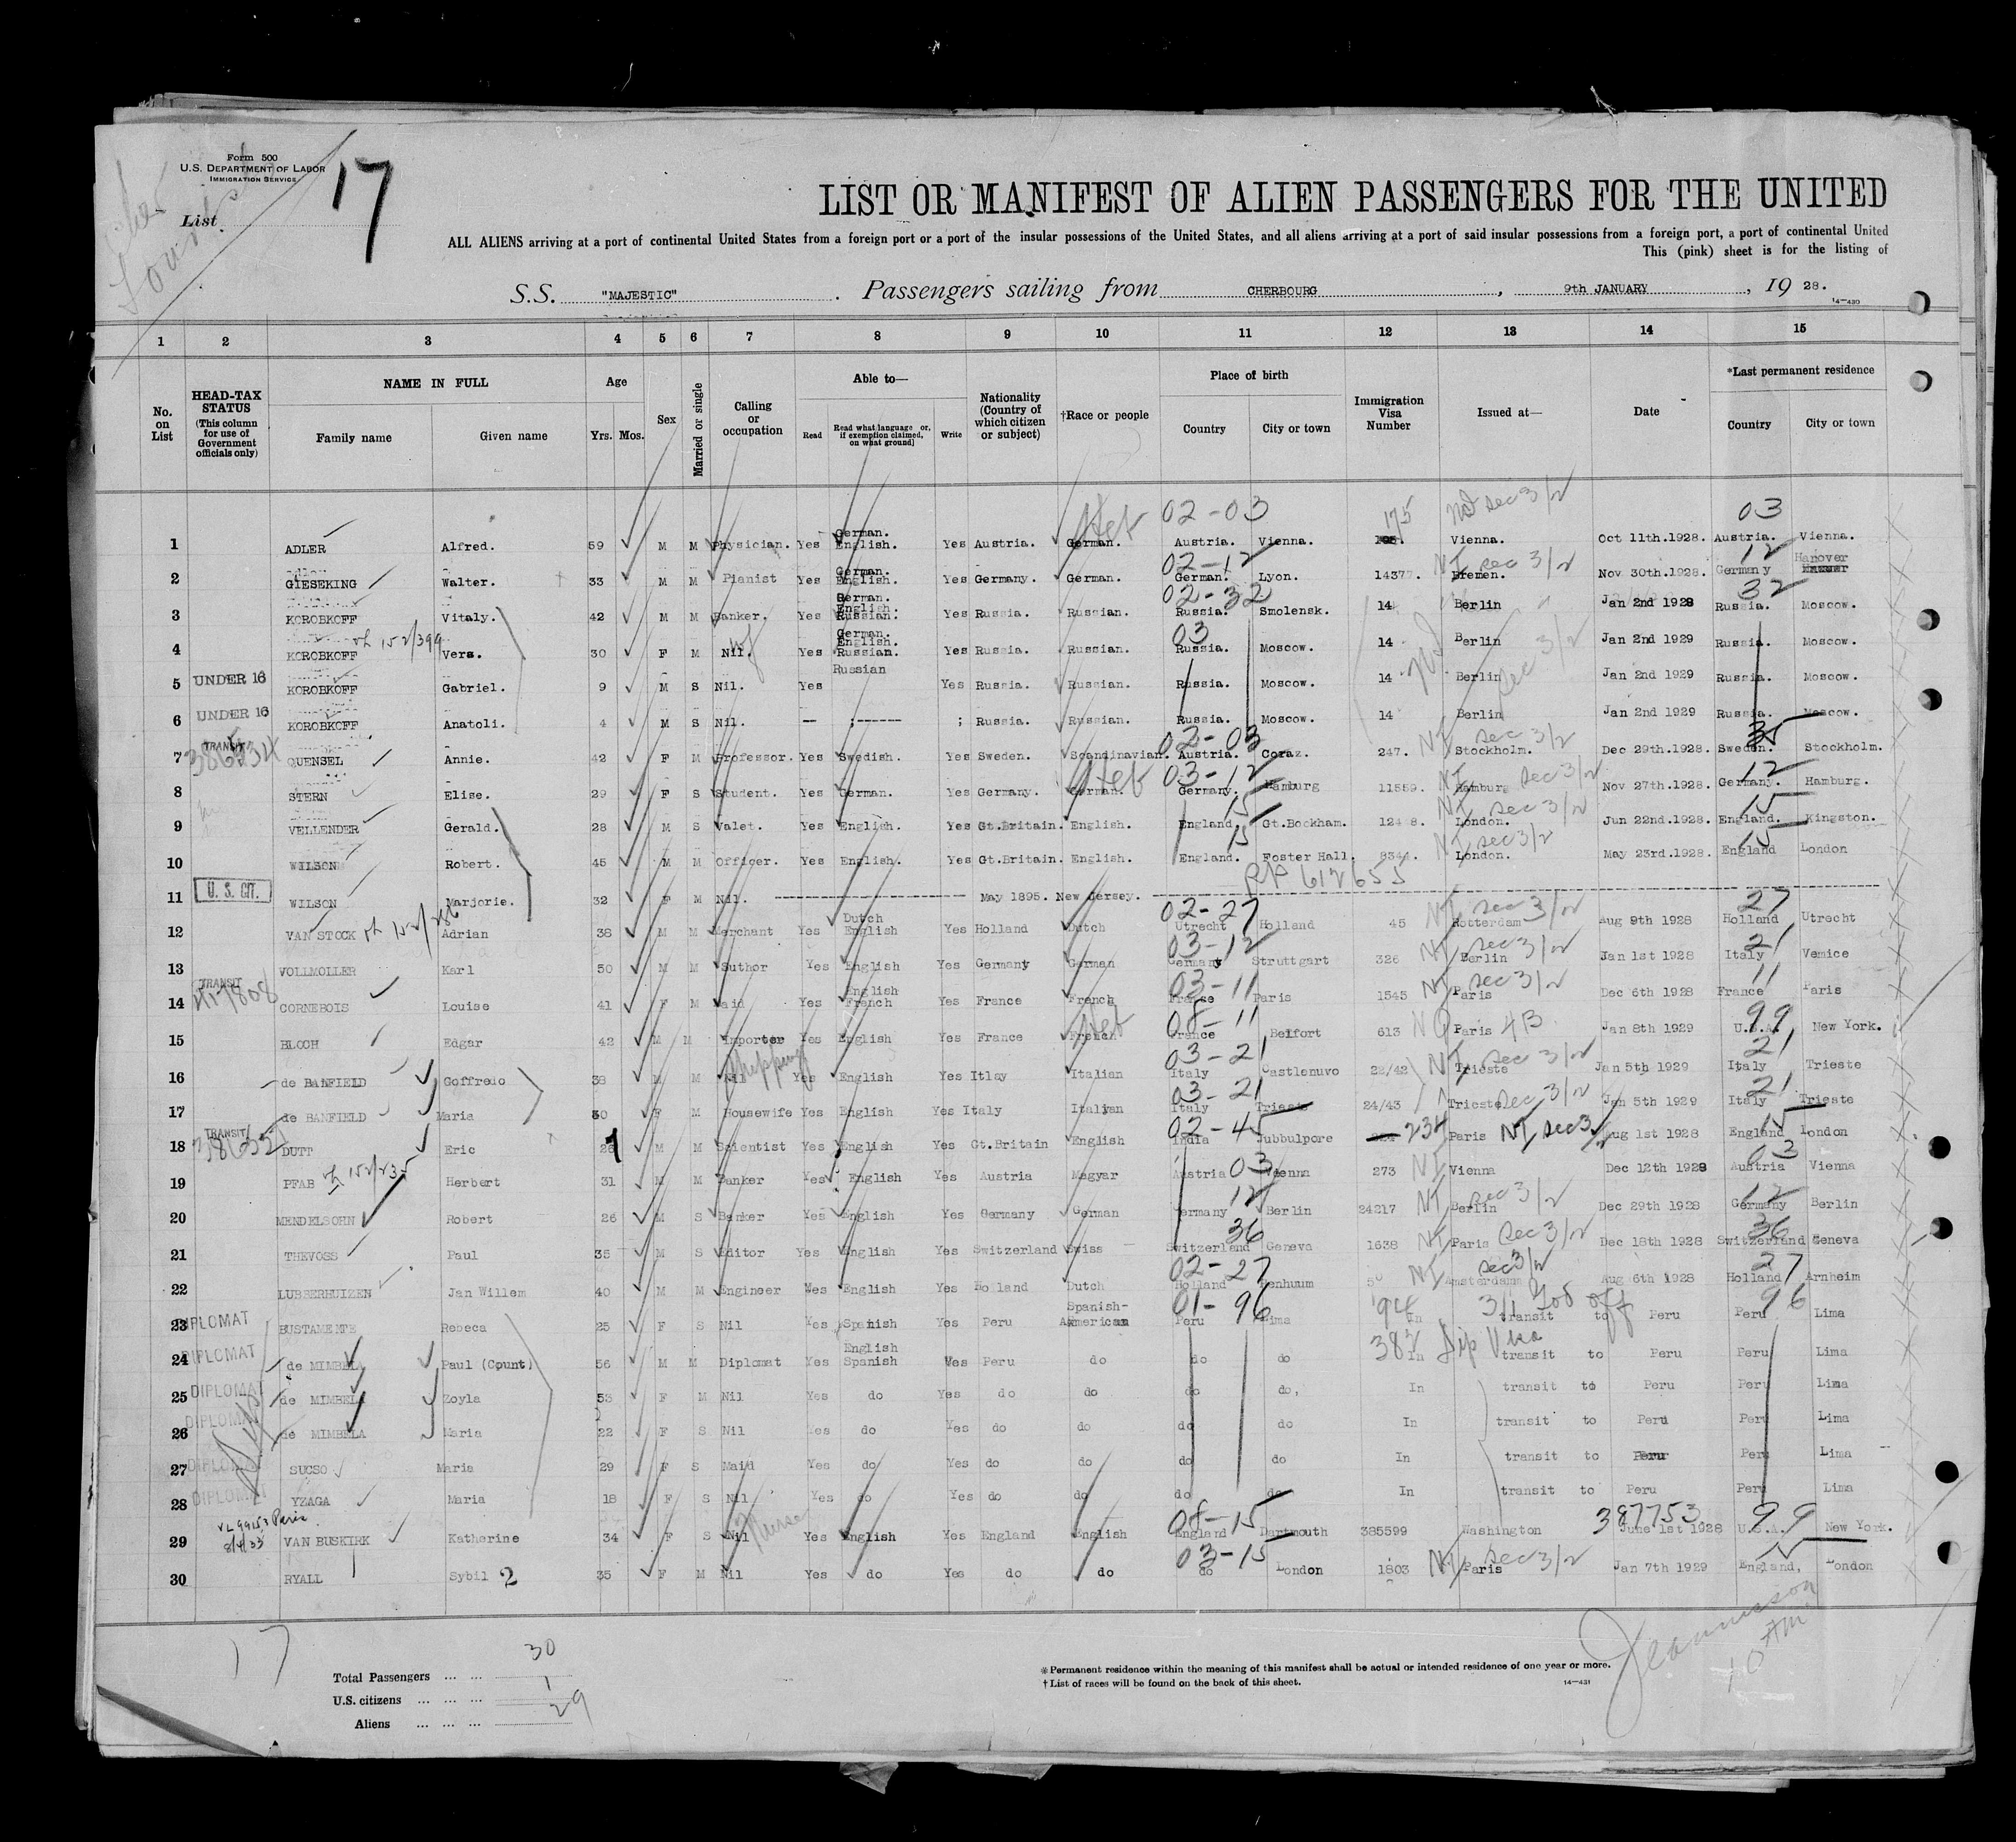 Form 500
U.S. DEPARTMENT OF LABOR
IMMIGRATION SERVICE
List 17
LIST OR MANIFEST OF ALIEN PASSENGERS FOR THE UNITED
ALL ALIENS arriving at a port of continental United States from a foreign port or a port of the insular possessions of the United States, and all aliens arriving at a port of said insular possessions from a foreign port, a port of continental United
This (pink) sheet is for the listing of
S.S. "MAJESTIC" . Passengers sailing from CHERBOURG , 9th JANUARY , 19 28.
14—430
1 2 3 4 5 6 7 8 9 10 11 12 13 14 15
No. on List
HEAD-TAX STATUS (This column for use of Government officials only)
NAME IN FULL
Family name Given name
Age
Yrs. Mos.
Sex
Married or single
Calling or occupation
Able to—
Read Read what language or, if exemption claimed, on what ground] Write
Nationality (Country of which citizen or subject)
†Race or people
Place of birth
Country City or town
Immigration Visa Number
Issued at—
Date
*Last permanent residence
Country City or town
1 ADLER Alfred. 59 M M Physician. Yes German. English. Yes Austria. German. Heb 02-03 Austria. Vienna. 175 Vienna. Oct 11th.1928. 03 Austria. Vienna.
2 GIESEKING Walter. 33 M M Pianist Yes German. English. Yes Germany. German. 02-12 German. Lyon. 14377. NI sec 3/2 Bremen. Nov 30th.1928. 12 Germany Hanover
3 KOROBKOFF Vitaly. 42 M M Banker. Yes German. English. Russian. Yes Russia. Russian. 02-32 Russia. Smolensk. 14 Berlin Jan 2nd 1928 32 Russia. Moscow.
4 KOROBKOFF Vera. 30 F M Nil. wf Yes German. English. Russian. Yes Russia. Russian. 03 Russia. Moscow. 14 Berlin Jan 2nd 1929 Russia. Moscow.
5 UNDER 16 KOROBKOFF Gabriel. 9 M S Nil. Yes Russian Yes Russia. Russian. Russia. Moscow. 14 Berlin Jan 2nd 1929 Russia. Moscow.
6 UNDER 16 KOROBKOFF Anatoli. 4 M S Nil. — ;------ ; Russia. Russian. Russia. Moscow. 14 Berlin Jan 2nd 1929 Russia. Moscow.
7 TRANSIT QUENSEL Annie. 42 F M Professor. Yes Swedish. Yes Sweden. Scandinavian. 02-03 Austria. Coraz. 247. NI sec 3/2 Stockholm. Dec 29th.1928. 35 Sweden. Stockholm.
8 STERN Elise. 29 F S Student. Yes German. Yes Germany. German. Heb 03-12 Germany. Hamburg 11559. NI sec 3/2 Hamburg Nov 27th.1928. 12 Germany. Hamburg.
9 VELLENDER Gerald. 28 M S Valet. Yes English. Yes Gt.Britain. English. 15 England. Gt.Bockham. NI sec 3/2 London. Jun 22nd.1928. 15 England. Kingston.
10 WILSON Robert. 45 M M Officer. Yes English. Yes Gt.Britain. English. 15 England. Foster Hall. 8344. NI sec 3/2 London. May 23rd.1928. 15 England London
11 U. S. CIT. WILSON Marjorie. 32 F M Nil. May 1895. New Jersey. PP 612655
12 VAN STOCK Adrian 38 M M Merchant Yes Dutch English Yes Holland Dutch 02-27 Utrecht Holland 45 NI sec 3/2 Rotterdam Aug 9th 1928 27 Holland Utrecht
13 VOLLMOLLER Karl 50 M M Suthor Yes English Yes Germany German 03-12 Germany Struttgart 326 NI sec 3/2 Berlin Jan 1st 1928 21 Italy Vemice
14 TRANSIT CORNEBOIS Louise 41 F M Maid Yes English French Yes France French 03-11 France Paris 1543 NI sec 3/2 Paris Dec 6th 1928 11 France Paris
15 BLOCH Edgar 42 M M Importer Yes English Yes France French Heb 08-11 France Belfort 613 NQ Paris 4B Jan 8th 1929 99 U.S.A. New York.
16 de BANFIELD Goffredo 38 M M Nil Shipping Yes English Yes Itlay Italian 03-21 Italy Castlenuvo 22/42 NI sec 3/2 Trieste Jan 5th 1929 21 Italy Trieste
17 de BANFIELD Maria 30 F M Housewife Yes English Yes Italy Italian 03-21 Italy Trieste 24/43 Trieste sec 3/2 Jan 5th 1929 21 Italy Trieste
18 TRANSIT DUTT Eric M M Scientist Yes English Yes Gt.Britain English 02-45 India Jubbulpore 234 Paris NI, sec 3/2 Aug 1st 1928 15 England London
19 PFAB Herbert 31 M M Banker Yes English Yes Austria Magyar Austria 03 Vienna 273 NI Vienna Dec 12th 1928 03 Austria Vienna
20 MENDELSOHN Robert 26 M S Banker Yes English Yes Germany German 12 Germany Berlin 24217 NI sec 3/2 Berlin Dec 29th 1928 12 Germany Berlin
21 THEVOSS Paul 35 M S Editor Yes English Yes Switzerland Swiss 36 Switzerland Geneva 1638 NI Paris sec 3/2 Dec 18th 1928 36 Switzerland Geneva
22 LUBBERHUIZEN Jan Willem 40 M M Engineer Yes English Yes Holland Dutch 02-27 Holland Renhuum NI sec 3/2 Amsterdamm Aug 6th 1928 27 Holland Arnheim
23 DIPLOMAT BUSTAMENTE Rebeca 25 F S Nil Yes Spanish Yes Peru Spanish-American 01-96 Peru Lima In transit to Peru 96 Peru Lima
24 DIPLOMAT de MIMBELA Paul (Count) 56 M M Diplomat Yes English Spanish Yes Peru do do do In transit to Peru Peru Lima
25 DIPLOMAT de MIMBELA Zoyla 53 F M Nil Yes do Yes do do do do, In transit to Peru Peru Lima
26 DIPLOMAT de MIMBELA Maria 22 F S Nil Yes do Yes do do do do In transit to Peru Peru Lima
27 DIPLOMAT SUCSO Maria 29 F S Maid Yes do Yes do do do do In transit to Peru Peru Lima
28 DIPLOMAT YZAGA Maria 18 F S Nil Yes do Yes do do do do In transit to Peru Peru Lima
29 VAN BUSKIRK Katherine 34 F S Nil Nurse Yes English Yes England English 08-15 England Dartmouth 385599 Washington 387753 June 1st 1928 99 U.S.A. New York.
30 RYALL Sybil 2 35 F M Nil Yes do Yes do do 03-15 do London 1803 NI sec 3/2 Paris Jan 7th 1929 15 England, London
17
Total Passengers ... ... 30
U.S. citizens ... ... ... 1
Aliens ... ... ... 29
*Permanent residence within the meaning of this manifest shall be actual or intended residence of one year or more.
†List of races will be found on the back of this sheet.
14—431
10 AM